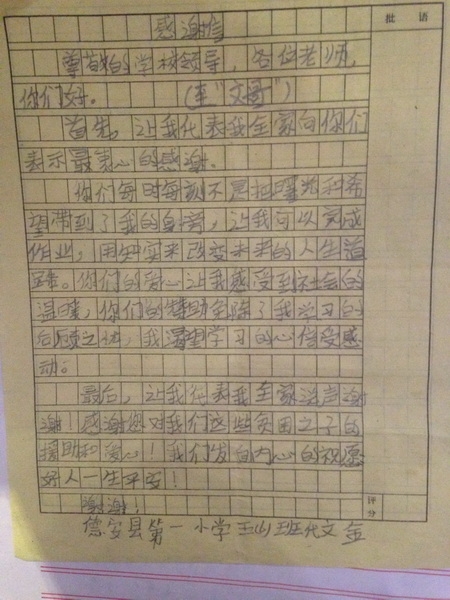 批 语
感谢信
尊敬的学校领导，各位老师，
你们好。
首先，让我代表我全家向你们
表示最衷心的感谢。
你们每时每刻不是把曙光和希
望带到了我的身旁，让我可以完成
作业，用知实来改变未来的人生道
。你们的爱心让我感受到社会的
温暖，你们的赞助全除了我学习的
后顾之忧，我渴望学习的心倍受感
动。
最后，让我代表我全家说声谢
谢！感谢您对我们这些贫困之子的
援助和爱心！我们发自内心的祝愿
好人一生平安！
评分
谢谢！
德安县第一小学 班